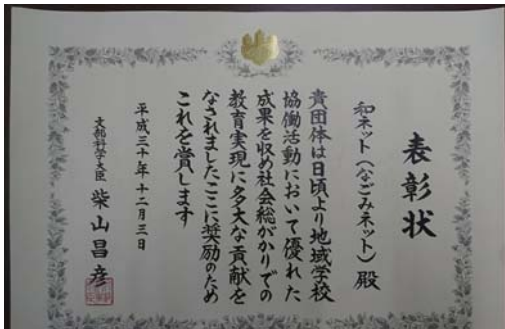 表彰状
和ネット(なごみネット)殿
貴団体は日頃より地域学校
協働活動において優れた
成果を収め社会総がかりでの
教育実現に多大な貢献を
なされましたここに奨励のため
これを賞します
平成三十年十二月三日
文部科学大臣 柴山昌彦